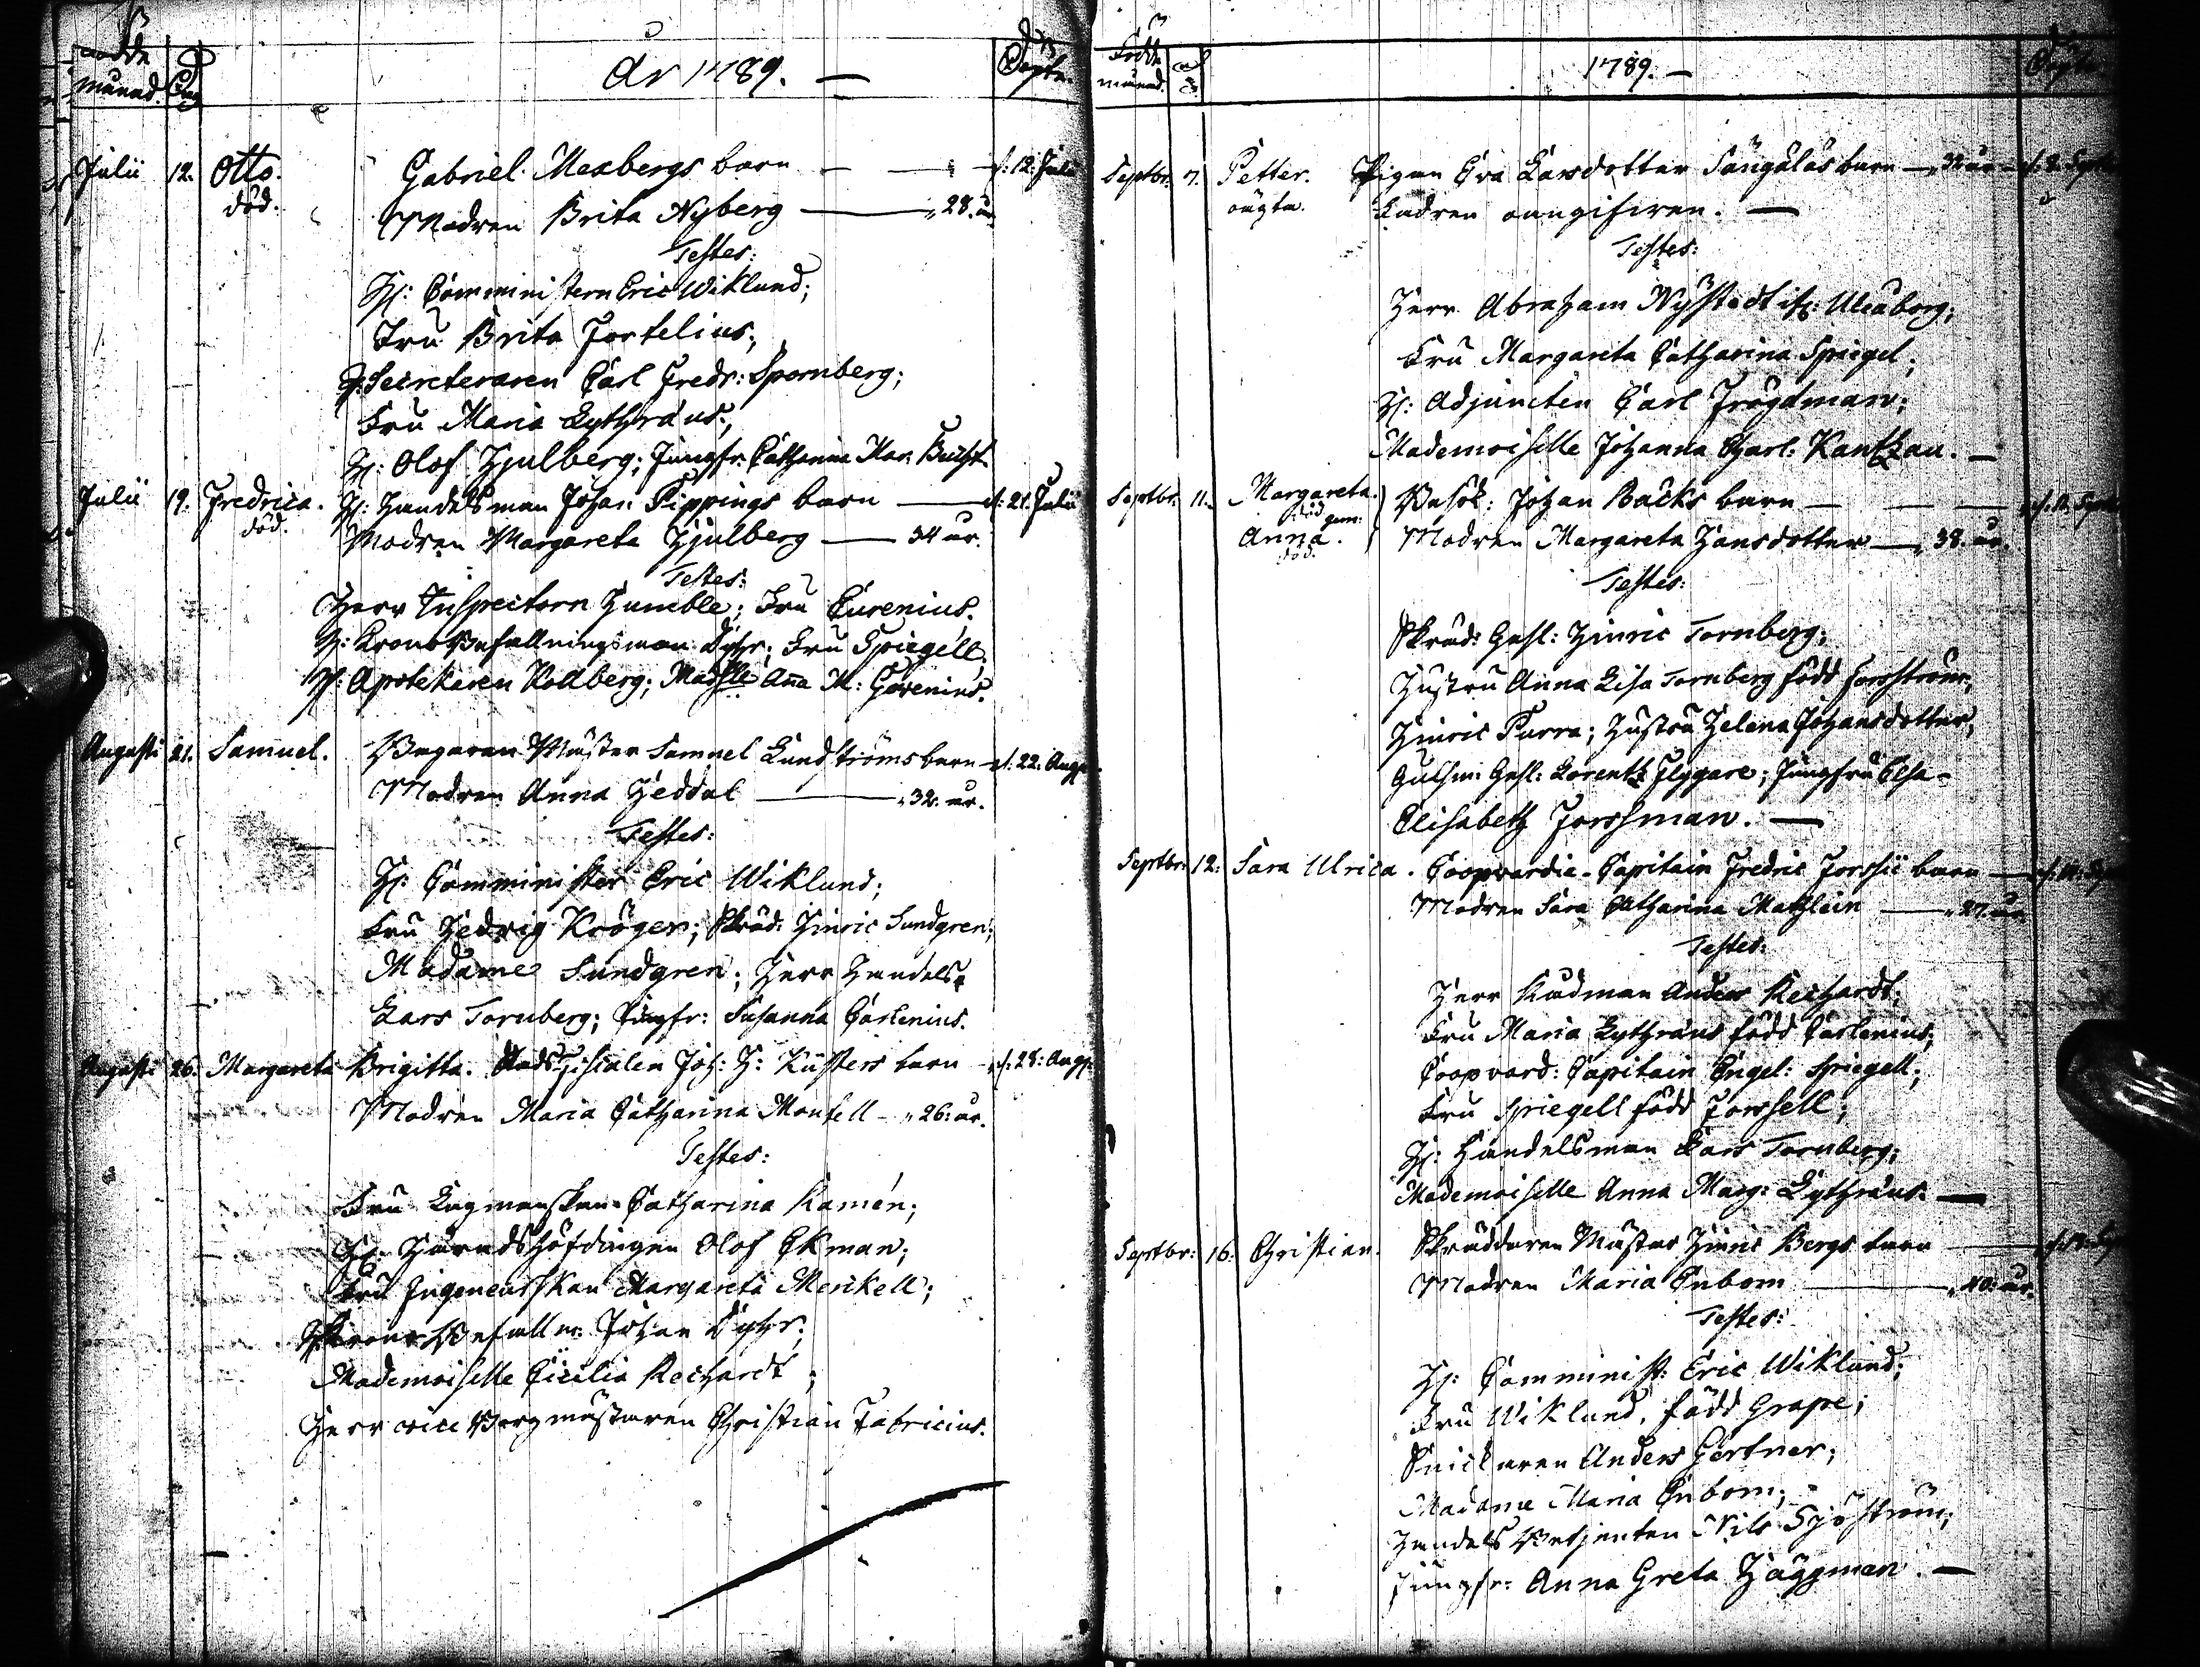 Födde
månad. Dag
År 1789. —
Döpte.
Julii 12. Otto. Gabriel Mexbergs barn — — d: 12: Julii
död. Modren Brita Nyberg — 28. år
Testes:
H: Comministern Eric Wiklund;
Fru Brita Fortelius;
H: Secreteraren Carl Fredr: Spornberg;
Fru Maria Lythræus;
H: Olof Hjulberg; Jungfr. Catharina Mar. Bucht
Julii 19. Fredrica. H: Handelsman Johan Pippings barn — d: 21. Julii
död. Modren Margareta Hjulberg — 34 år.
Testes:
Herr Inspectorn Humble; Fru Eurenius.
H: Krono Befallningsman Dyhr; Fru Spiegell.
H: Apotekaren Kollberg; Madslle Ana M:
Augusti 21. Samuel. Bagaren Mäster Samuel Lundströms barn d. 22. Aug
Modren Anna Heddal — 32. år.
Testes:
H: Comminister Eric Wiklund;
Fru Hedvig Kröger; Skräd: Hinric Sundgren;
Madame Sundgren; Herr Handels
Lars Tornberg; Jungfr: Susanna Carlenius.
Augusti 26. Margareta Brigitta. Stads Fiscalen Joh: H: Küsters barn d: 28: Aug
Modren Maria Catharina Montell — 26: år.
Testes:
Fru Lagmanskan Catharina Ramén;
H: Häradshöfdingen Olof Ekman;
Fru Ingeneurskan Margareta Merckell;
H: Krono Befalln: Johan Dyhr;
Mademoiselle Cicilia Reichardt;
Herr vice Borgmästaren Christian Fabricius.
Födde
månad.
1789. —
Döpte
Septbr. 7. Petter. Pigan Eva Larsdotter barn — 32 år — d. 8. Sept
oägta. Fadren oangifwen. —
Testes:
Herr Abraham Nystedt if: Uleaborg;
Fru Margareta Catharina Spiegel;
H: Adjuncten Carl Frögdman;
Mademoiselle Johanna Charl: Kantzau. —
Septbr. 11. Margareta. Besök: Johan Backs barn —
död gem:
Anna. Modren Margareta Hansdotter — 38. år.
död.
Testes:
Skräd: Gesl: Hinric Tornberg;
Hustru Anna Lisa Tornberg född Forsström;
Hinric Purra; Hustru Helena Johansdotter;
Gulsm: Gesl: Lorentz Flygare; Jungfru Elsa-
Elisabeth Forssman. —
Septbr. 12. Sara Ulrica. Coopvardie-Capitain Fredric Forssii barn —
Modren Sara Catharina Mathlein — 27. år
Testes:
Herr Rådman Anders Reichardt;
Fru Maria Lythræus född Carlenius;
Coopvard: Capitain Engel: Spiegell;
Fru Spiegell född Forssell;
H: Handelsman Lars Tornberg;
Mademoiselle Anna Marg: Lythræus. —
Septbr: 16. Christian. Skräddaren Mäster Hinric Bergs barn —
Modren Maria Enbom — 40. år.
Testes:
H: Comminist: Eric Wiklund;
Fru Wiklund, född Grape;
Snickaren Anders Gertner;
Madame Maria Enbom;
Handels Betjenten Nils Sjöström;
Jungfr: Anna Greta Häggman. —